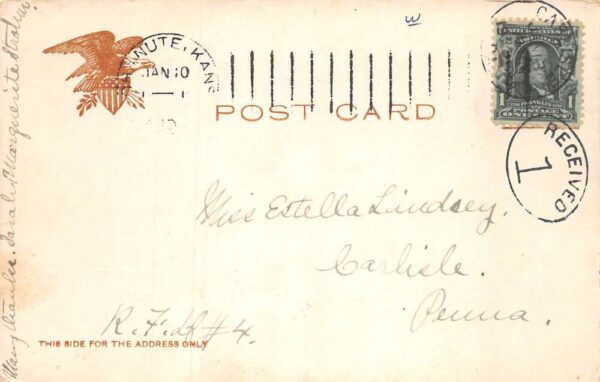 CHANUTE, KANS
JAN 10
POST CARD
UNITED STATES OF AMERICA
FRANKLIN
POSTAGE
1 ONE CENT 1
CAR
RECEIVED
1
Miss Estella Lindsey.
Carlisle.
Penna.
R. F. D # 4.
THIS SIDE FOR THE ADDRESS ONLY
Many thanks. Sarah & Marguerite
w